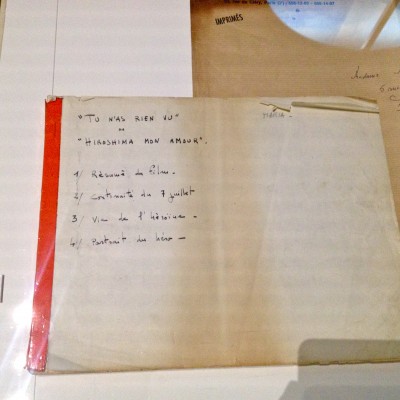 IMPRIMÉS
"TU N'AS RIEN VU"
ou
"HIROSHIMA MON AMOUR".
1/ Résumé du film.
2/ Continuité du 7 juillet
3/ Vie de l'héroïne -
4/ Portrait du héros -